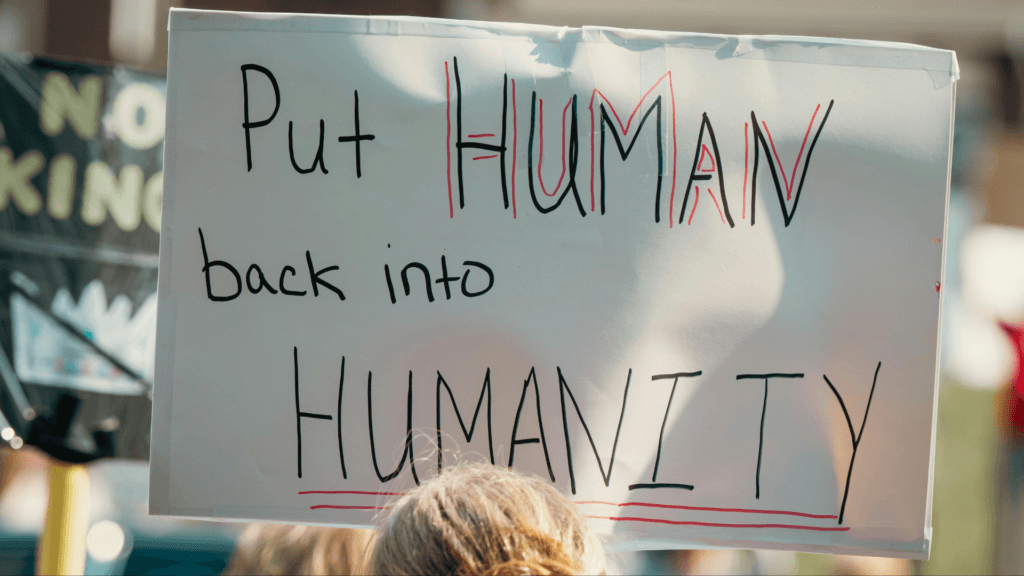 Put HUMAN
back into
HUMANITY
NO
KING